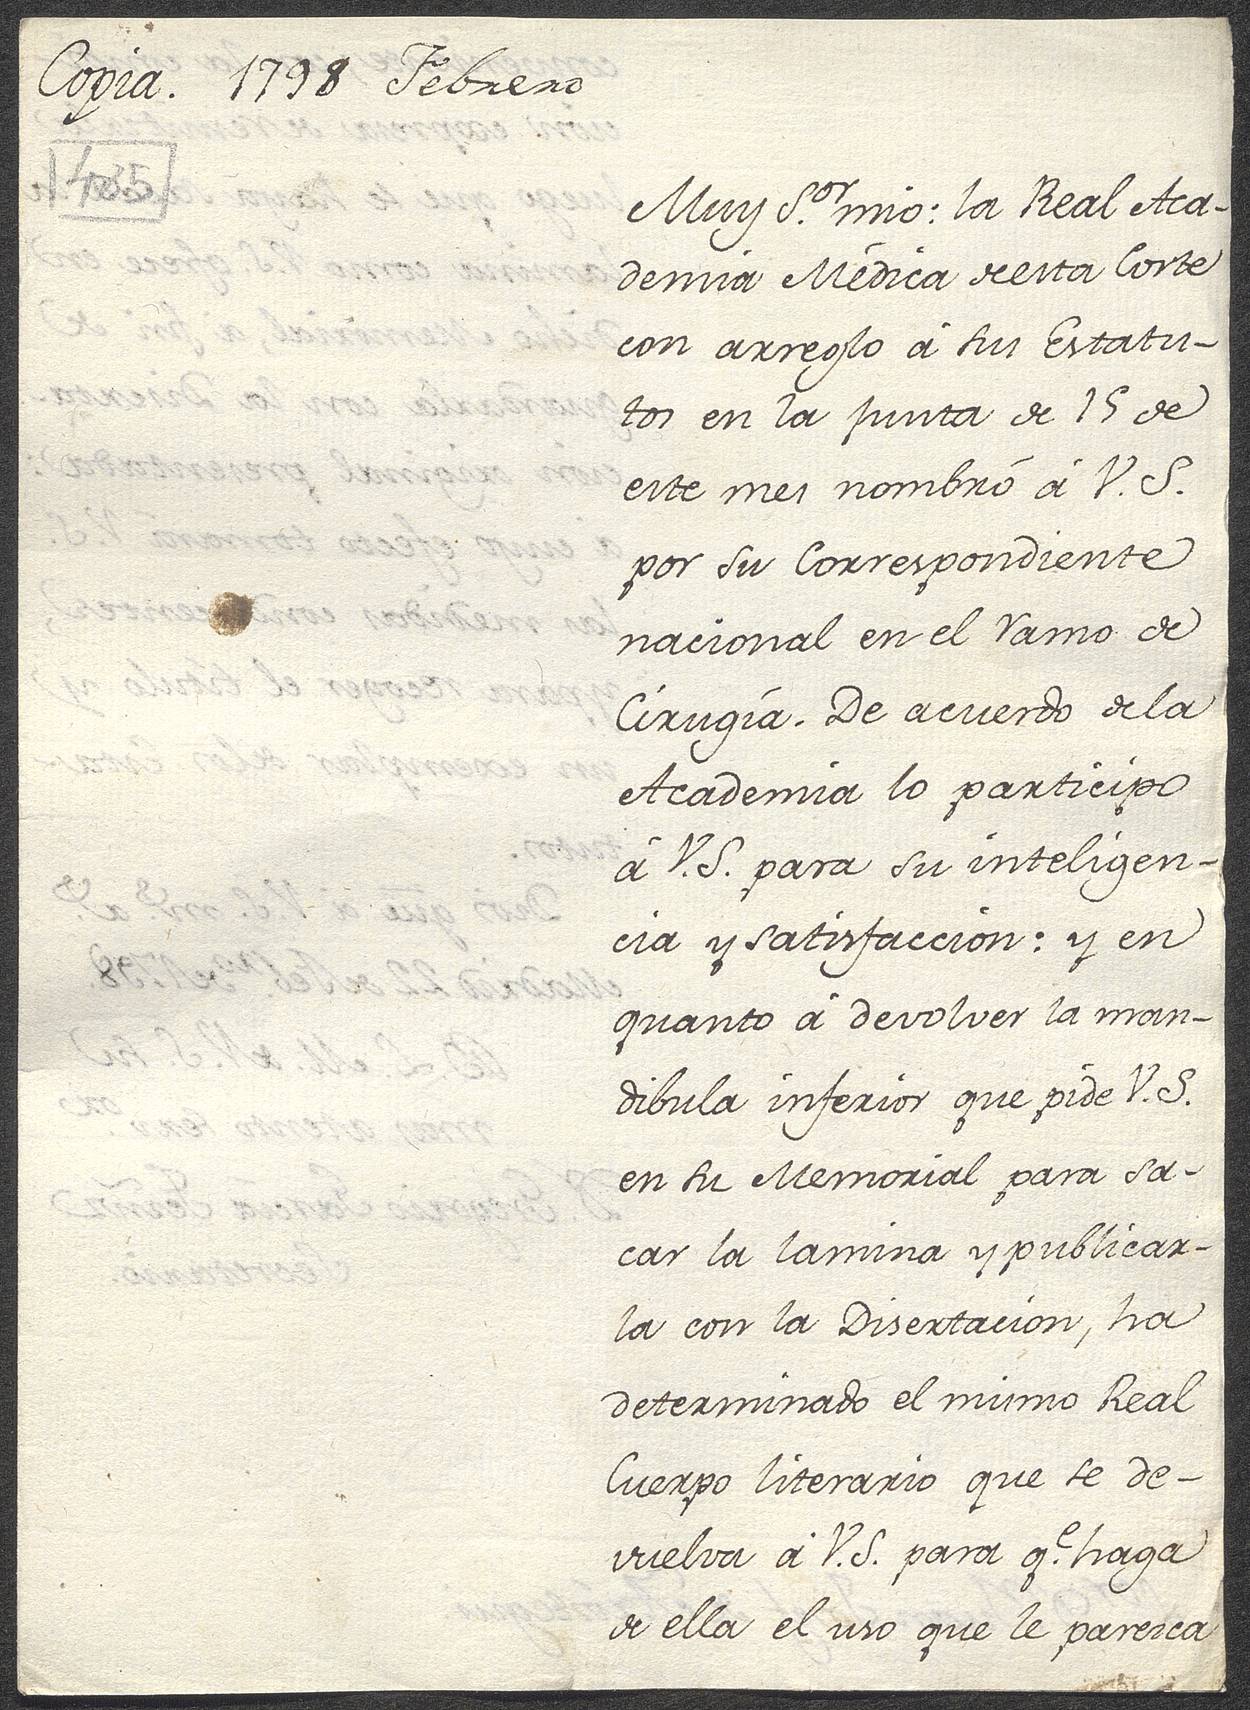 Copia. 1798 Febrero
435
Muy S.or mio: la Real Aca-
demia Médica de esta Corte
con arreglo á sus Estatu-
tos en la junta de 15 de
este mes nombró á V. S.
por su Correspondiente
nacional en el ramo de
Cirugía. De acuerdo de la
Academia lo participo
á V.S. para su inteligen-
cia y satisfaccion: y en
quanto á devolver la man-
dibula inferior que pide V.S.
en su Memorial para sa-
car la lamina y publicar-
la con la Disertacion, ha
determinado el mismo Real
Cuerpo literario que se de-
vuelva á V.S. para q.e haga
de ella el uso que le paresca